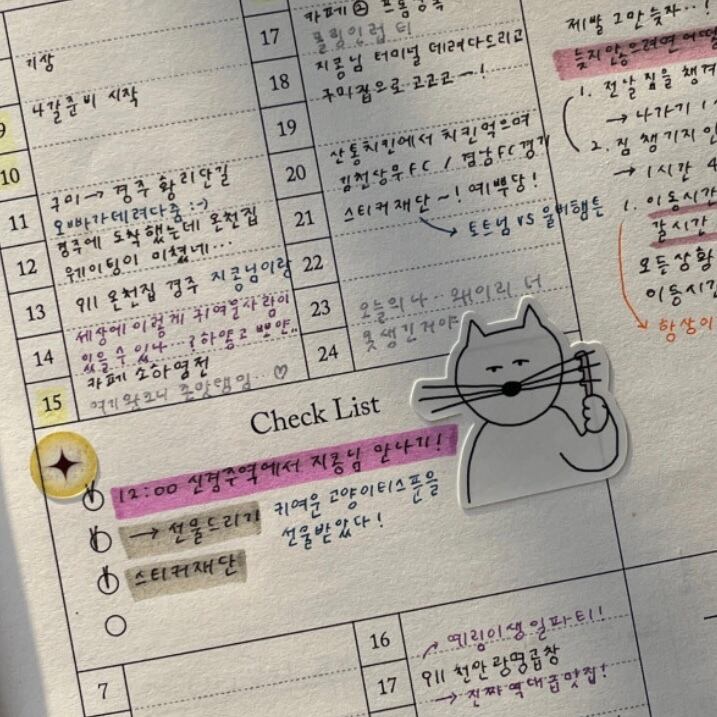 기상
9
나갈준비 시작
10
11
구미→ 경주 황리단길
오빠가데려다줌 :-)
12
경주에 도착했는데 온천집
웨이팅이 미쳤네...
13
911 온천집 경주 지콩님이랑
14
세상에 이렇게 귀여운사람이
있을 수 있나...? 하얗고 뽀얀..
15
카페 소하영전
♡
17
카페 ②
올림인럽 티
18
지콩님 터미널 데려다드리고
구미집으로 고고고~!
19
20
산통치킨에서 치킨먹으며
김천상무FC / 경남FC경기
21
스티커재단~! 예뿌당!
→ 토트넘 VS 울버햄튼
22
23
오늘의나.. 왜이리 더
24
못생긴거야
제발 그만늦자..!
늦지않으려면
1. 전날 짐을 챙겨
→ 나가기 1
2. 짐 챙기지
→ 1시간
1. 이동시간
갈시간
모든상황
이동시간
→ 항상
Check List
12:00 신경주역에서 지콩님 만나기!
→ 선물드리기
귀여운 고양이티스푼을
선물받았다!
스티커재단
7
16
→ 예림이생일파티!!
17
911 천안 광명곱창
→ 진짜역대급맛집!